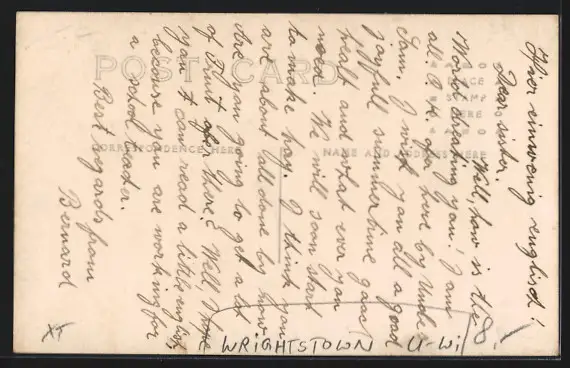 Hier einwenig englisch!
Dear sister.
Well, how is the
World treating you? I am
all O.K. after here by Uncle
Sam. I wish you all a good
joyfull summertime good
healt and what ever you
need. We will soon start
to make hay. I think you
are about all done by now.
Are you going to get a lot
of Fruit over there? Well I hope
you can read a little english
because you are working for
a school teacher.
Best regards from
Bernard
POST CARD
CORRESPONDENCE HERE
NAME AND ADDRESS HERE
PLACE
STAMP
HERE
WRIGHTSTOWN U-Wi